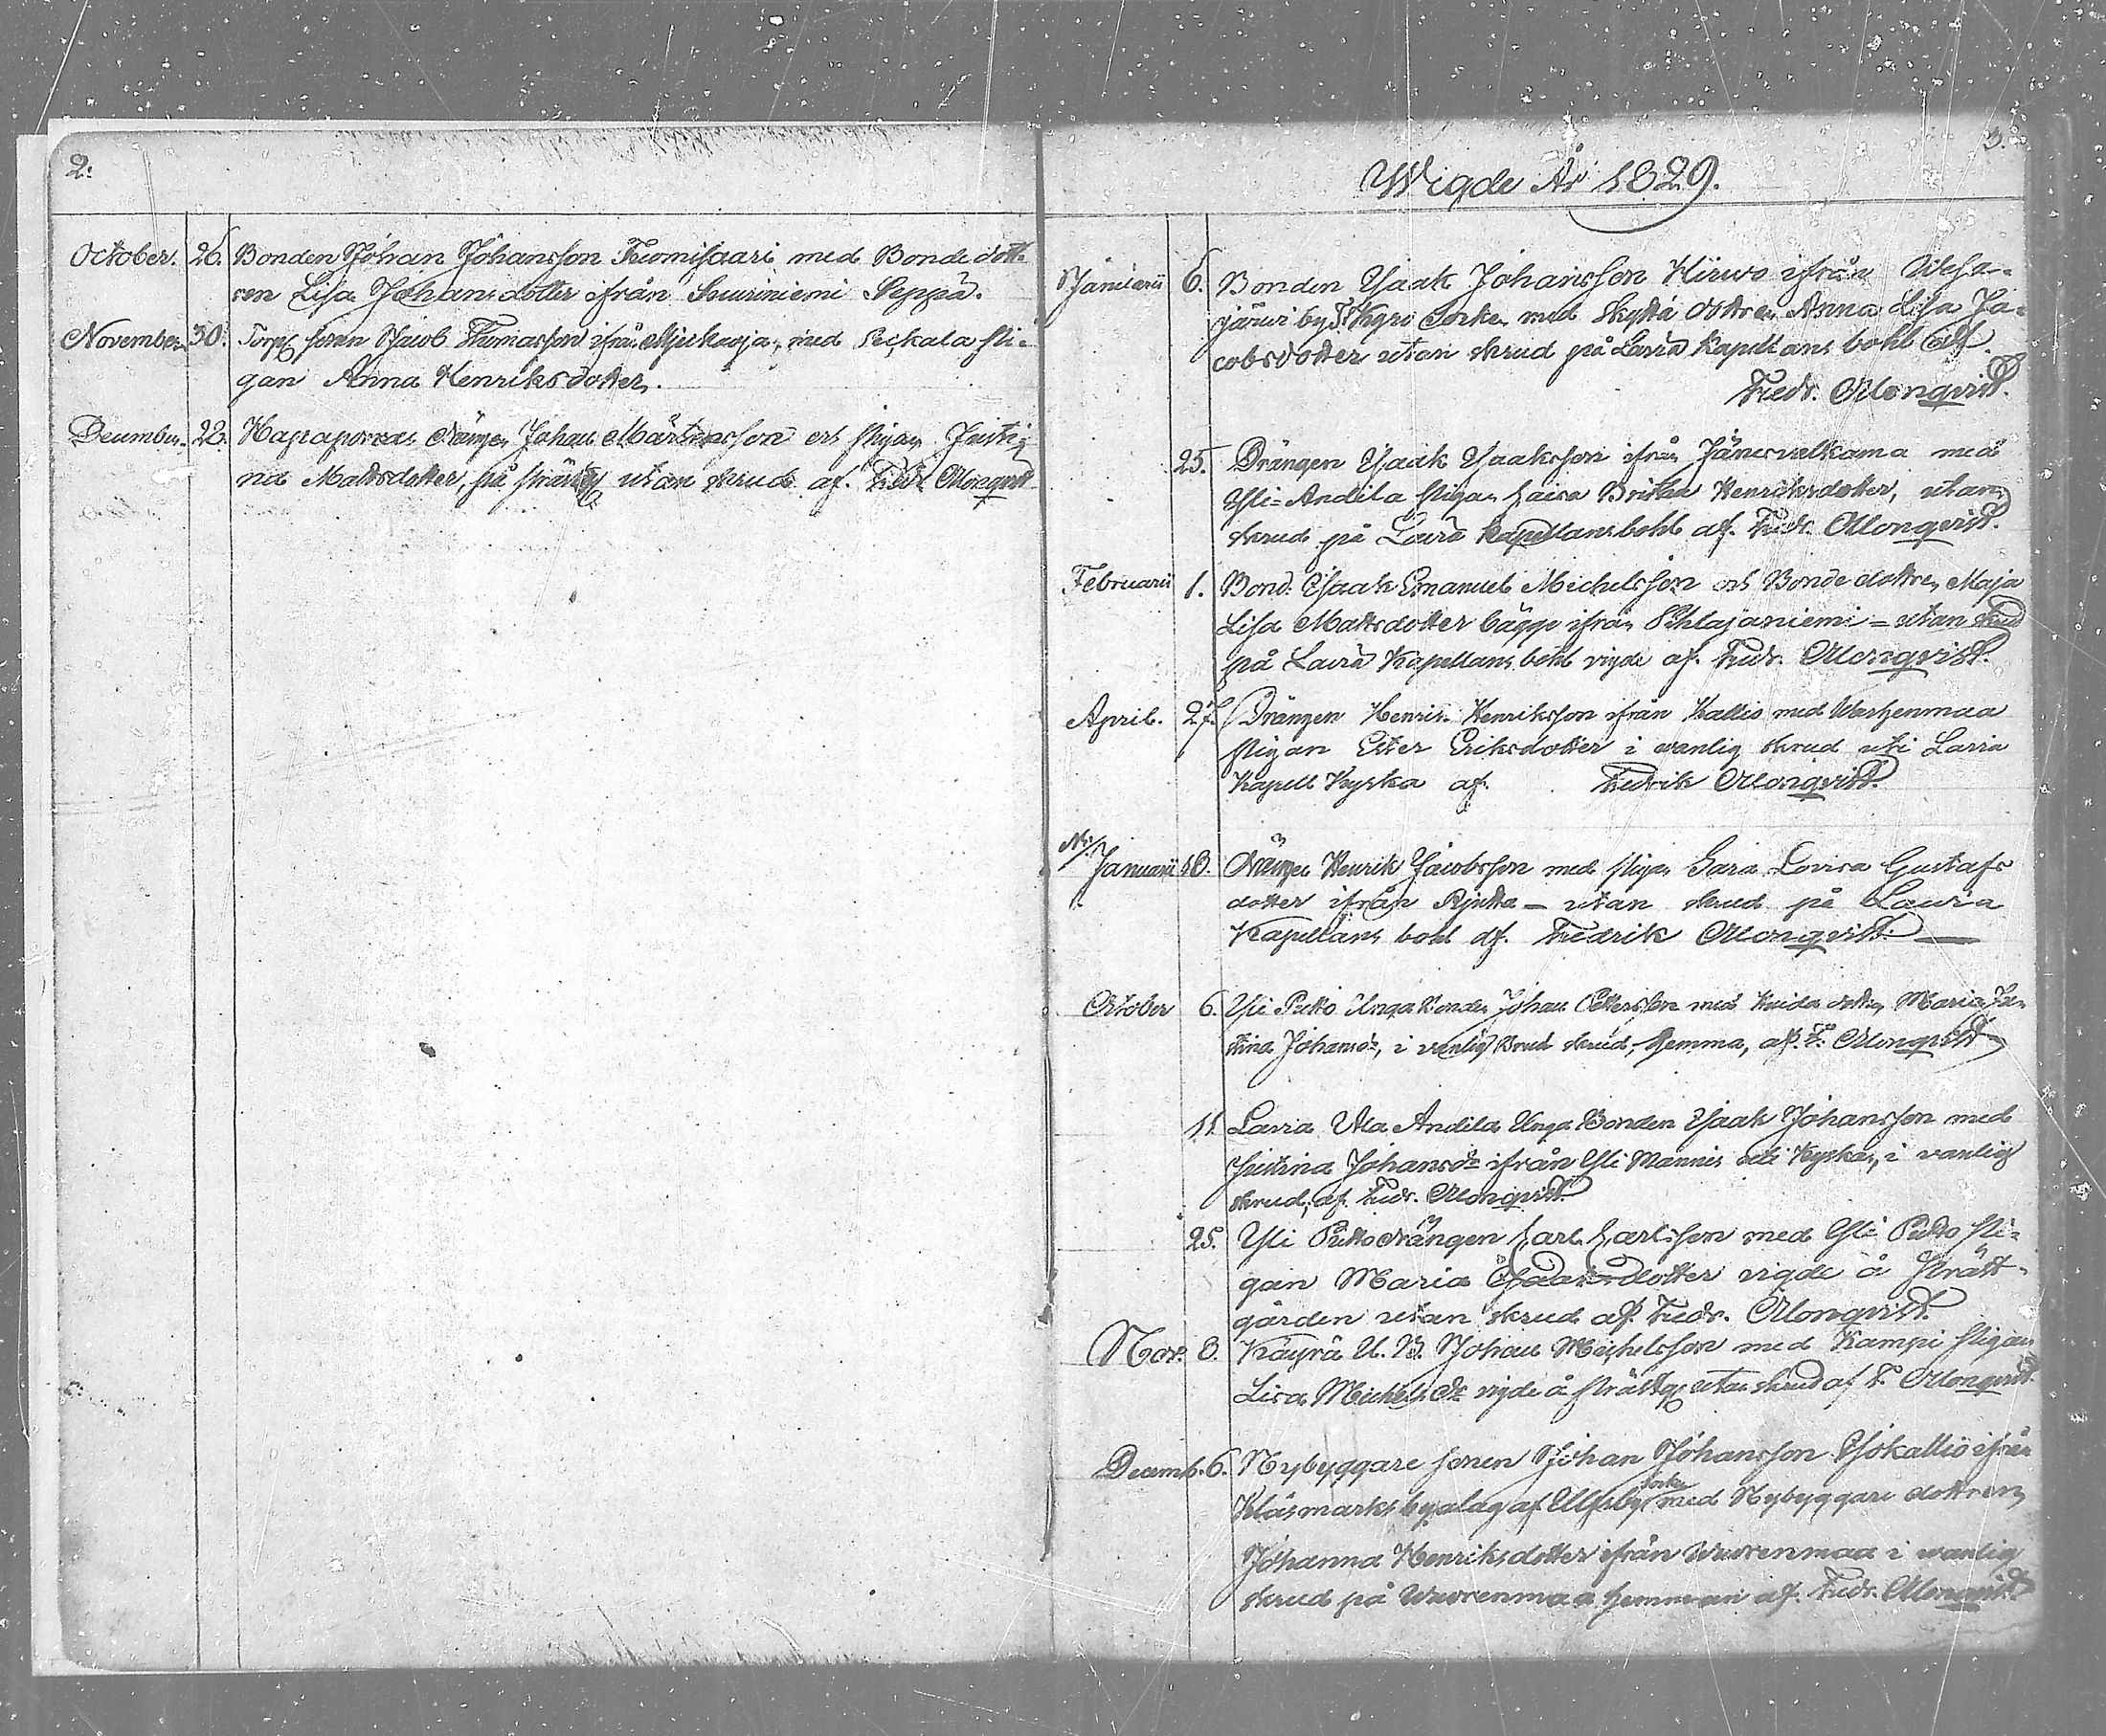 2:
October. 26. Bonden Johan Johansson Kuomisaari med Bonde dott-
ren Lisa Johansdotter ifrån Suuriniemi Seppä.
November 30. Torp. sonen Jacob Thomasson ifrån Myrkaoja, med Peckala Pi-
gan Anna Henriksdotter.
December. 22. Drängen Johan Mårtensson och Pigan Justi-
na Mattsdotter, på utan skrud af. Fedr. Monqvist
3.
Wigde År 1829.
Januarii 6. Bonden Isaak Johansson Hirwo ifrån Wesa-
järwi by Kyro Sorken med Skytta dottren Anna Lisa Ja-
cobsdotter utan skrud på Lavia Kapellans bohl af
Fredr. Monqvist.
25. Drängen Isaak Isaaksson ifrån Jänesvalkama med
Yli-Andila Pigan Caisa Britha Henriksdotter, utan
skrud på Lavia Kapellans bohl af. Fredr. Monqvist.
Februarii 1. Bond. Isaak Emanuel Michelsson och Bonde dottren Maja
Lisa Mattsdotter bägge ifrån Pihlajaniemi - utan skrud
på Lavia Kapellans bohl vigde af. Fredr. Monqvist.
April. 27. Drängen Henrik Henriksson ifrån Kallio med
Pigan Ester Eriksdotter i wanlig skrud uti Lavia
Kapell Kyrka af. Fredrik Monqvist.
Januarii 18. Drängen Henrik Jacobsson med Pigan Sara Lovisa Gustafs
dotter ifrån Rjutta - utan skrud på Lavia
Kapellans bohl af. Fredrik Monqvist.
October 6. Yli Putto Unga Bonden Johan Pettersson med dottren Maria Ju-
stina Johansdr, i vanlig Brud skrud, hemma, af. F. Monqvist
11 Lavia Ala Andila Unga Bonden Isaak Johansson med
Justina Johansdr ifrån Yli Mannis uti Kyrkan, i vanlig
skrud, af. Fredr. Monqvist
25. Yli Putto drängen Carl Carlsson med Yli Putto Pi-
gan Maria Isaaksdotter vigde å Präst-
gården utan skrud af. Fredr. Monqvist.
Nov. 8. Käyrä U. B. Johan Michelsson med Kampi Pigan
Lisa Michelsdr vigde å Prästg. utan skrud af F. Monqvist
Decemb. 6. Nybyggare sonen Johan Johansson Isokallio ifrån
Kläsmarks byalag af Ulfsby sockn med Nybyggare dottren
Johanna Henriksdotter ifrån Wuorenmaa i wanlig
skrud på Wuorenmaa hemman af. Fredr. Monqvist